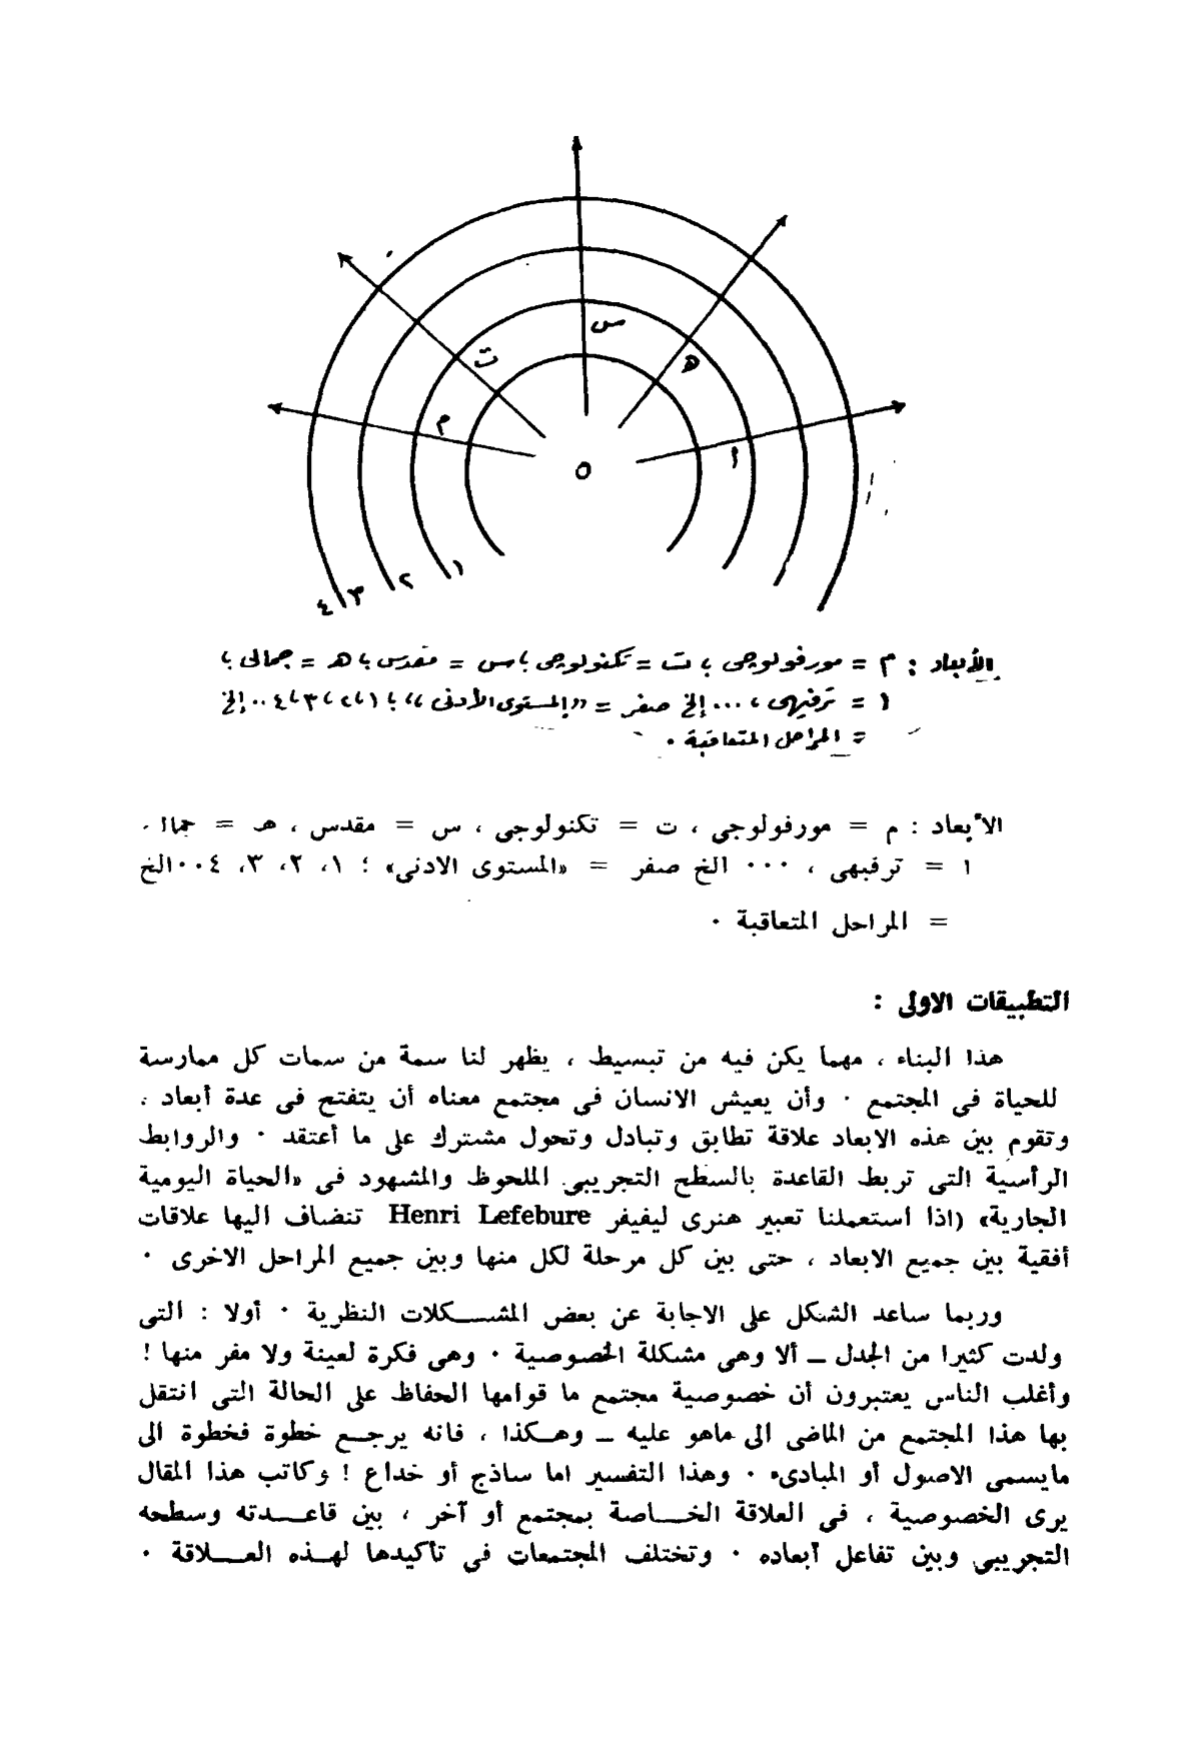 س
ت
ه
م
ا
٥
١
٢
٣
٤
الأبعاد : م = مورفولوجى ، ت = تكنولوجى ، س = مقدس ، هـ = جمالى ،
ا = ترفيهى ، ... إلخ صفر = «المستوى الأدنى» ، ١ ، ٢ ، ٣ ، ٤ .. إلخ
= المراحل المتعاقبة .
الأبعاد : م = مورفولوجى ، ت = تكنولوجى ، س = مقدس ، هـ =
ا = ترفيهى ، ٠٠٠ الخ صفر = «المستوى الادنى» ؛ ١، ٢، ٣، ٤٠٠الخ
= المراحل المتعاقبة ٠
التطبيقات الاولى :
هذا البناء ، مهما يكن فيه من تبسيط ، يظهر لنا سمة من سمات كل ممارسة
للحياة فى المجتمع ٠ وأن يعيش الانسان فى مجتمع معناه أن يتفتح فى عدة أبعاد ،
وتقوم بين هذه الابعاد علاقة تطابق وتبادل وتحول مشترك على ما أعتقد ٠ والروابط
الرأسية التى تربط القاعدة بالسطح التجريبى الملحوظ والمشهود فى «الحياة اليومية
الجارية» (اذا استعملنا تعبير هنرى ليفيفر Henri Lefebure تنضاف اليها علاقات
أفقية بين جميع الابعاد ، حتى بين كل مرحلة لكل منها وبين جميع المراحل الاخرى ٠
وربما ساعد الشكل على الاجابة عن بعض المشكلات النظرية ٠ أولا : التى
ولدت كثيرا من الجدل ــ ألا وهى مشكلة الخصوصية ٠ وهى فكرة لعينة ولا مفر منها !
وأغلب الناس يعتبرون أن خصوصية مجتمع ما قوامها الحفاظ على الحالة التى انتقل
بها هذا المجتمع من الماضى الى ماهو عليه ــ وهكذا ، فانه يرجع خطوة فخطوة الى
مايسمى الاصول أو المبادىء ٠ وهذا التفسير اما ساذج أو خداع ! وكاتب هذا المقال
يرى الخصوصية ، فى العلاقة الخاصة بمجتمع أو آخر ، بين قاعدته وسطحه
التجريبى وبين تفاعل أبعاده ٠ وتختلف المجتمعات فى تأكيدها لهذه العلاقة ٠